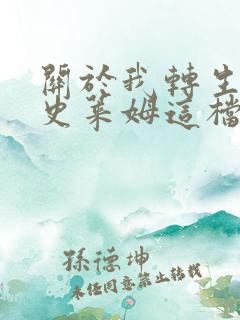 關於我轉生
史萊姆這檔
孫德坤
未經同意禁止轉載